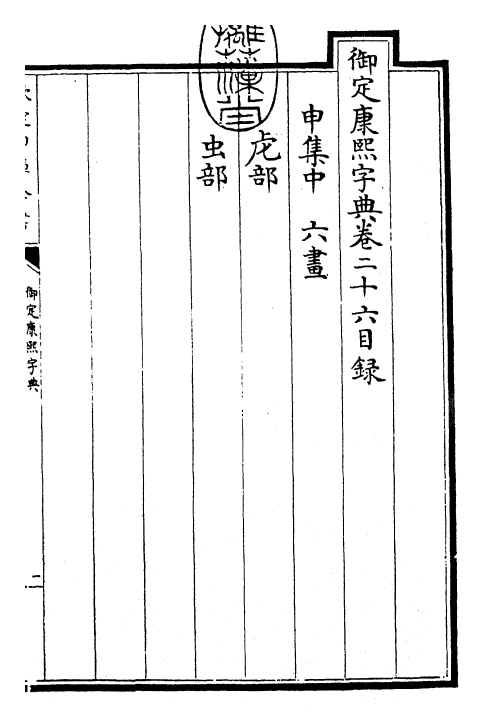 御定康熙字典卷二十六目録
申集中　六畫
虍部
虫部
御定康熙字典
二